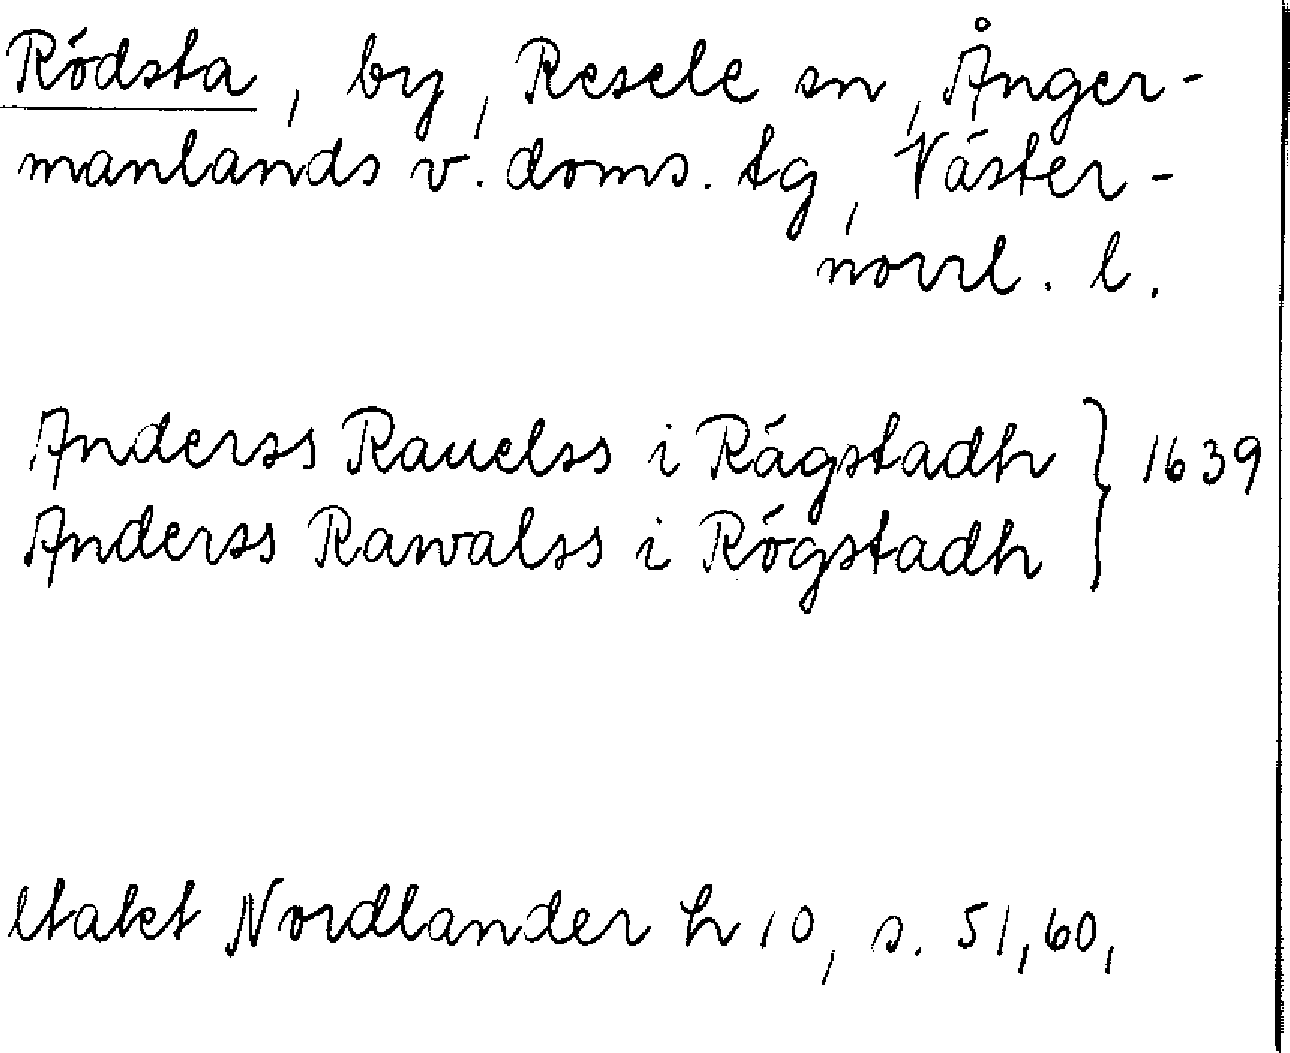 Rödsta, by, Resele sn, Ånger-
manlands v. doms. tg, Väster-
norrl. l.
Anderss Rauelss i Rägstadh } 1639
Anderss Rawalss i Rögstadh
Utakt Nordlander h 10, s. 51, 60,